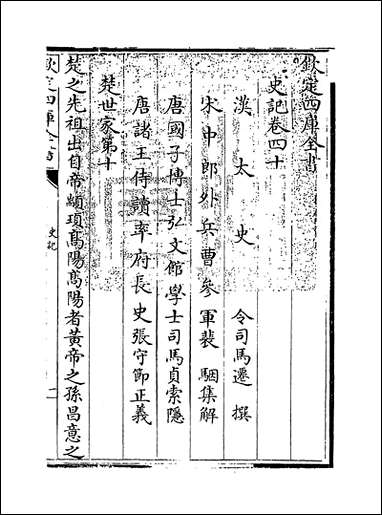 欽定四庫全書
史記卷四十
漢太史令司馬遷撰
宋中郎外兵曹參軍裴駰集解
唐國子博士弘文館學士司馬貞索隱
唐諸王侍讀率府長史張守節正義
楚世家第十
楚之先祖出自帝顓頊髙陽髙陽者黃帝之孫昌意之
欽定四庫全書
史記